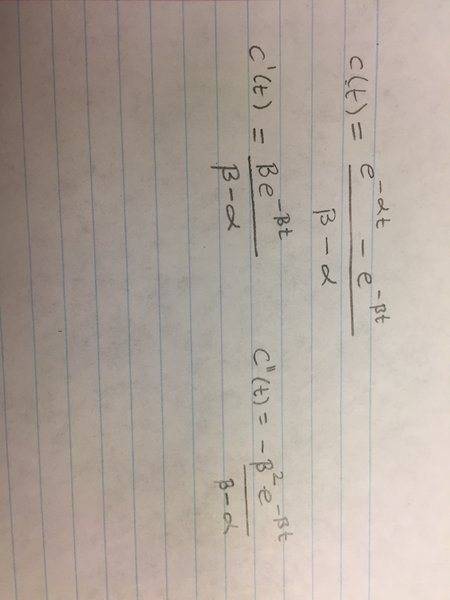 C(t) = (e^{-αt} - e^{-βt}) / (β - α)
C'(t) = βe^{-βt} / (β - α)    C''(t) = -β²e^{-βt} / (β - α)